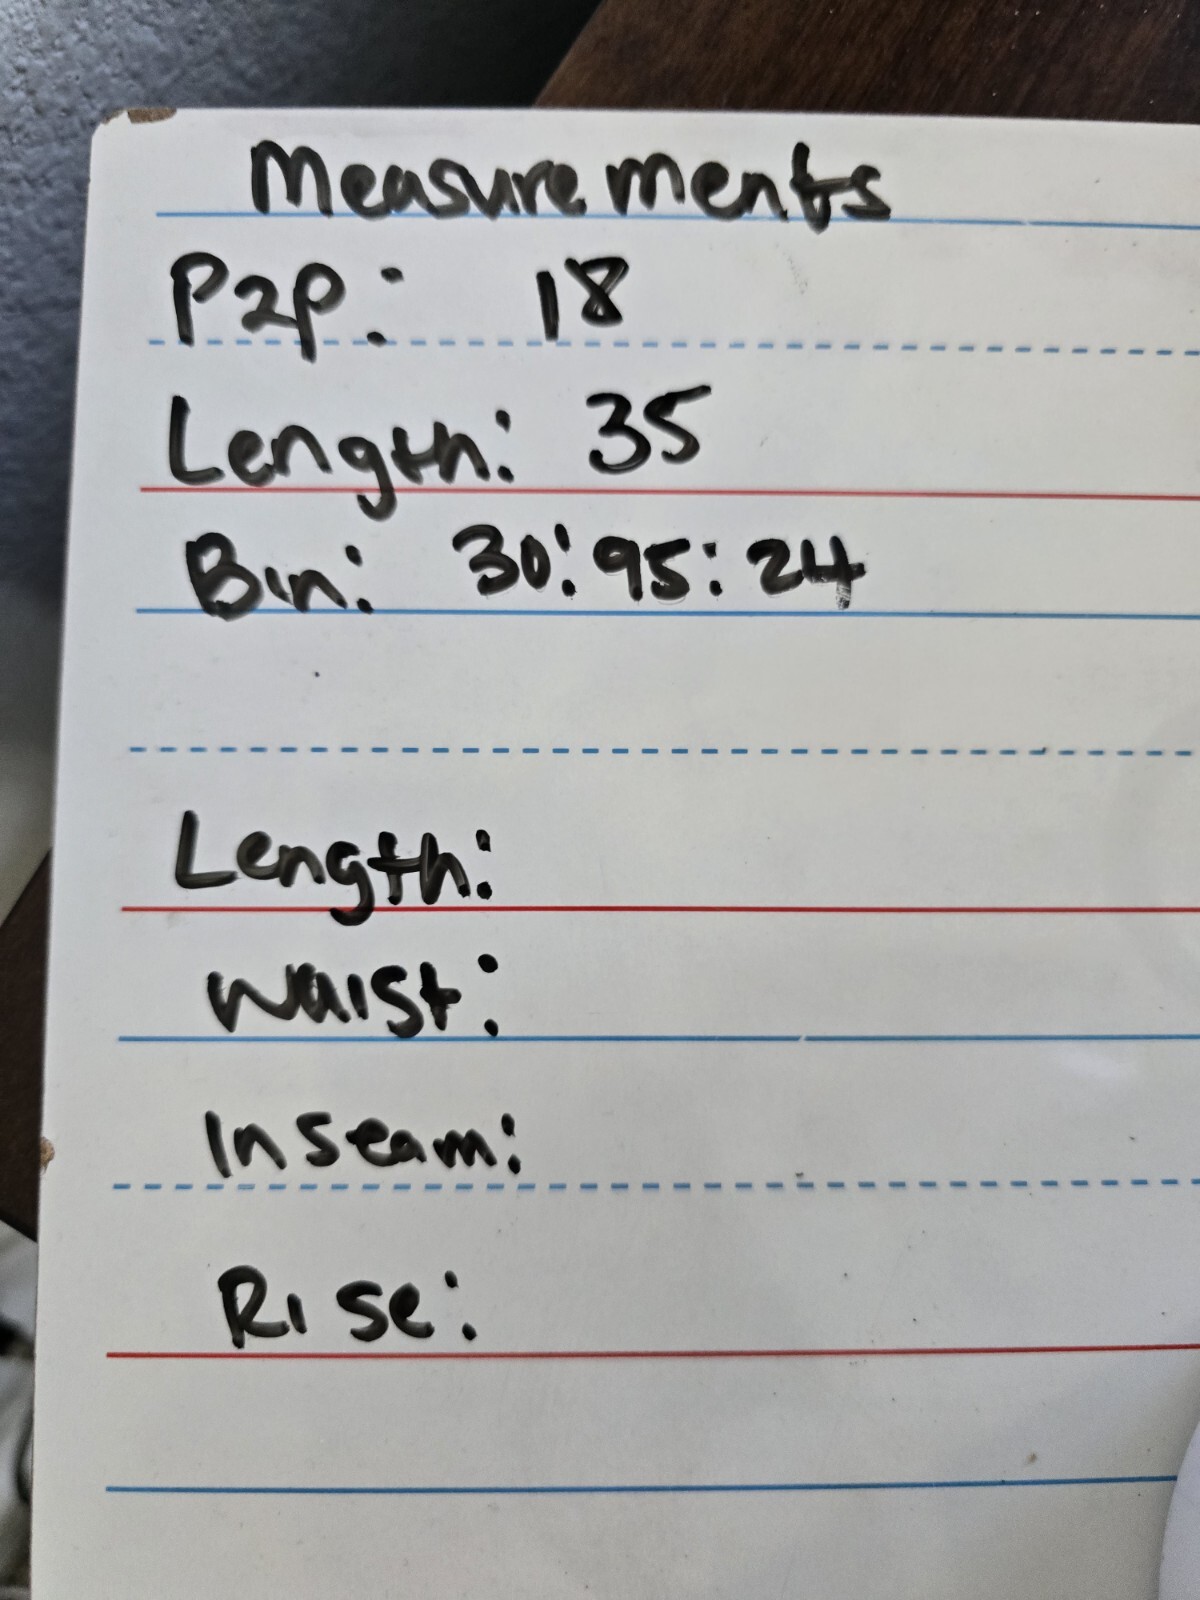 Measurements
P2P: 18
Length: 35
Bin: 30:95:24
Length:
Waist:
Inseam:
Rise: